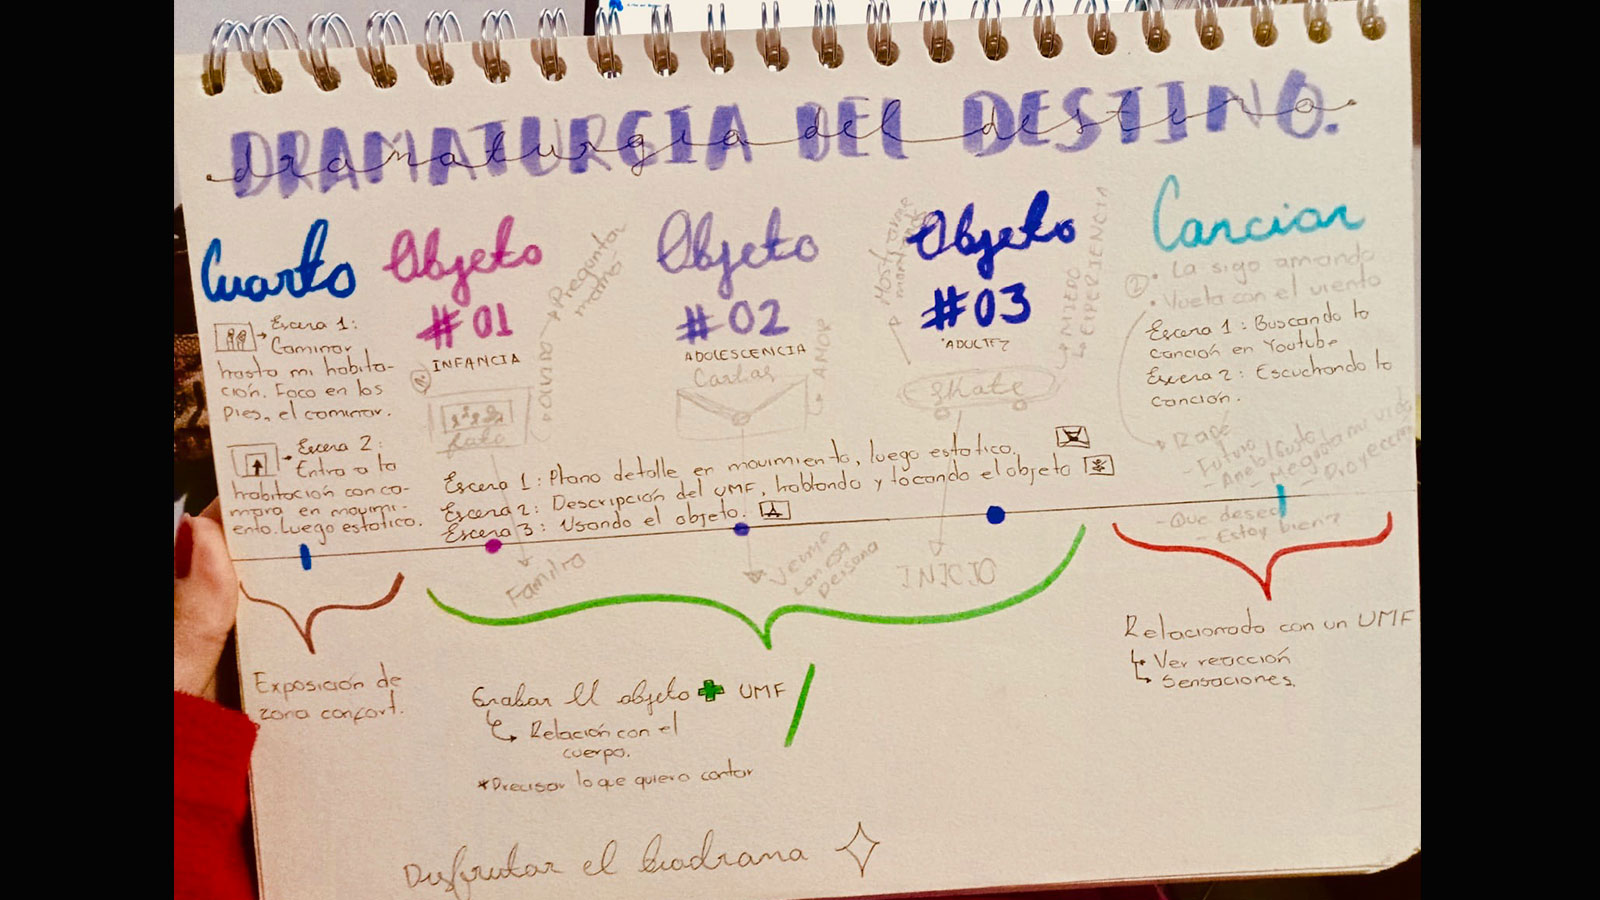 DRAMATURGIA DEL DESTINO.
dramaturgia del destino
Cuarto
Escena 1:
Caminar
hasta mi habita-
ción. Foco en los
pies, el caminar.
Escena 2:
Entro a la
habitación con ca-
mara en movimi-
ento. Luego estatico.
Objeto
#01
INFANCIA
Preguntar
mamá
OLVIDO
foto
Objeto
#02
ADOLESCENCIA
Cartas
AMOR
Objeto
#03
ADULTEZ
Mostrarme
MIEDO
EXPERIENCIA
Skate
Escena 1: Plano detalle en movimiento, luego estatico.
Escena 2: Descripción del UMF, hablando y tocando el objeto
Escena 3: Usando el objeto.
Canción
2
• La sigo amando
• Vuela con el viento
Escena 1: Buscando la
canción en Youtube
Escena 2: Escuchando la
canción.
- Futuro
- Anelo/Gusto
- Megusta mi vida
- Proyección
- Que deseo
- Estoy bien?
Familia
Verme
con esa
persona
INICIO
Exposición de
zona confort.
Grabar el objeto + UMF
Relación con el
cuerpo.
*Precisar lo que quiero contar
Relacionado con un UMF
Ver reacción
Sensaciones.
Disfrutar el biodrama